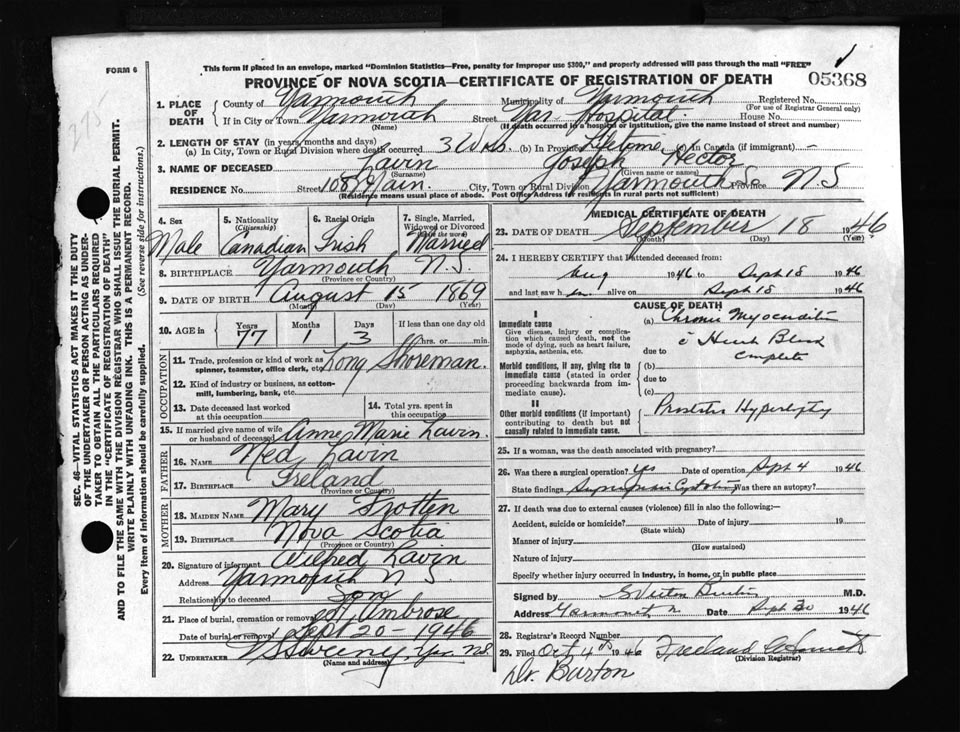 FORM 6
This form if placed in an envelope, marked "Dominion Statistics—Free, penalty for improper use $300," and properly addressed will pass through the mail "FREE"
PROVINCE OF NOVA SCOTIA—CERTIFICATE OF REGISTRATION OF DEATH
05368
1. PLACE OF DEATH
County of Yarmouth Municipality of Yarmouth Registered No.
(For use of Registrar General only)
If in City or Town Yarmouth Street Yar. Hospital. House No.
(Name) (If death occurred in a hospital or institution, give the name instead of street and number)
2. LENGTH OF STAY (in years, months and days)
(a) In City, Town or Rural Division where death occurred 3 Wks. (b) In Province Lifetime (c) In Canada (if immigrant) —
3. NAME OF DECEASED Lavin Joseph Hector
(Surname) (Given name or names)
RESIDENCE No. Street 108 Main. City, Town or Rural Division Yarmouth Province N.S
(Residence means usual place of abode. Post Office Address for residents in rural parts not sufficient)
4. Sex Male
5. Nationality (Citizenship) Canadian
6. Racial Origin Irish
7. Single, Married, Widowed or Divorced (write the word) Married
8. BIRTHPLACE Yarmouth N.S.
(Province or Country)
9. DATE OF BIRTH August 15 1869
(Month) (Day) (Year)
10. AGE in Years 77 Months 1 Days 3 If less than one day old
hrs. or min.
OCCUPATION
11. Trade, profession or kind of work as spinner, teamster, office clerk, etc. Long Shoreman.
12. Kind of industry or business, as cotton-mill, lumbering, bank, etc.
13. Date deceased last worked at this occupation
14. Total yrs. spent in this occupation
15. If married give name of wife or husband of deceased Anne Marie Lavin.
FATHER
16. NAME Ned Lavin
17. BIRTHPLACE Ireland
(Province or Country)
MOTHER
18. MAIDEN NAME Mary Trotten
19. BIRTHPLACE Nova Scotia
(Province or Country)
20. Signature of informant Wilfred Lavin
Address Yarmouth N.S.
Relationship to deceased Son
21. Place of burial, cremation or removal St Ambrose
Date of burial or removal Sept 20 - 1946
22. UNDERTAKER V Sweeny, Yar. N.S.
(Name and address)
MEDICAL CERTIFICATE OF DEATH
23. DATE OF DEATH September 18 1946
(Month) (Day) (Year)
24. I HEREBY CERTIFY that I attended deceased from:
Aug 1946 to Sept 18 1946
and last saw him alive on Sept 18 1946
CAUSE OF DEATH
I
Immediate cause
Give disease, injury or complication which caused death, not the mode of dying, such as heart failure, asphyxia, asthenia, etc.
(a) Chronic Myocarditis
c Heart Block
due to Complete
Morbid conditions, if any, giving rise to immediate cause (stated in order proceeding backwards from immediate cause).
(b)
due to
(c)
II
Other morbid conditions (if important) contributing to death but not causally related to immediate cause.
Prostatic Hypertrophy
25. If a woman, was the death associated with pregnancy?
26. Was there a surgical operation? Yes Date of operation Sept 4 1946
State findings Suprapubic Cystotomy Was there an autopsy?
27. If death was due to external causes (violence) fill in also the following:—
Accident, suicide or homicide? Date of injury 19
(State which)
Manner of injury
(How sustained)
Nature of injury
Specify whether injury occurred in industry, in home, or in public place
Signed by M.D.
Address Yarmouth Date Sept 20 1946
28. Registrar's Record Number
29. Filed Oct 4th 1946
(Division Registrar)
Dr. Burton
SEC. 46—VITAL STATISTICS ACT MAKES IT THE DUTY
OF THE UNDERTAKER OR PERSON ACTING AS UNDER-
TAKER TO OBTAIN ALL THE PARTICULARS REQUIRED
IN THE "CERTIFICATE OF REGISTRATION OF DEATH"
AND TO FILE THE SAME WITH THE DIVISION REGISTRAR WHO SHALL ISSUE THE BURIAL PERMIT.
WRITE PLAINLY WITH UNFADING INK. THIS IS A PERMANENT RECORD.
Every item of information should be carefully supplied. (See reverse side for instructions.)